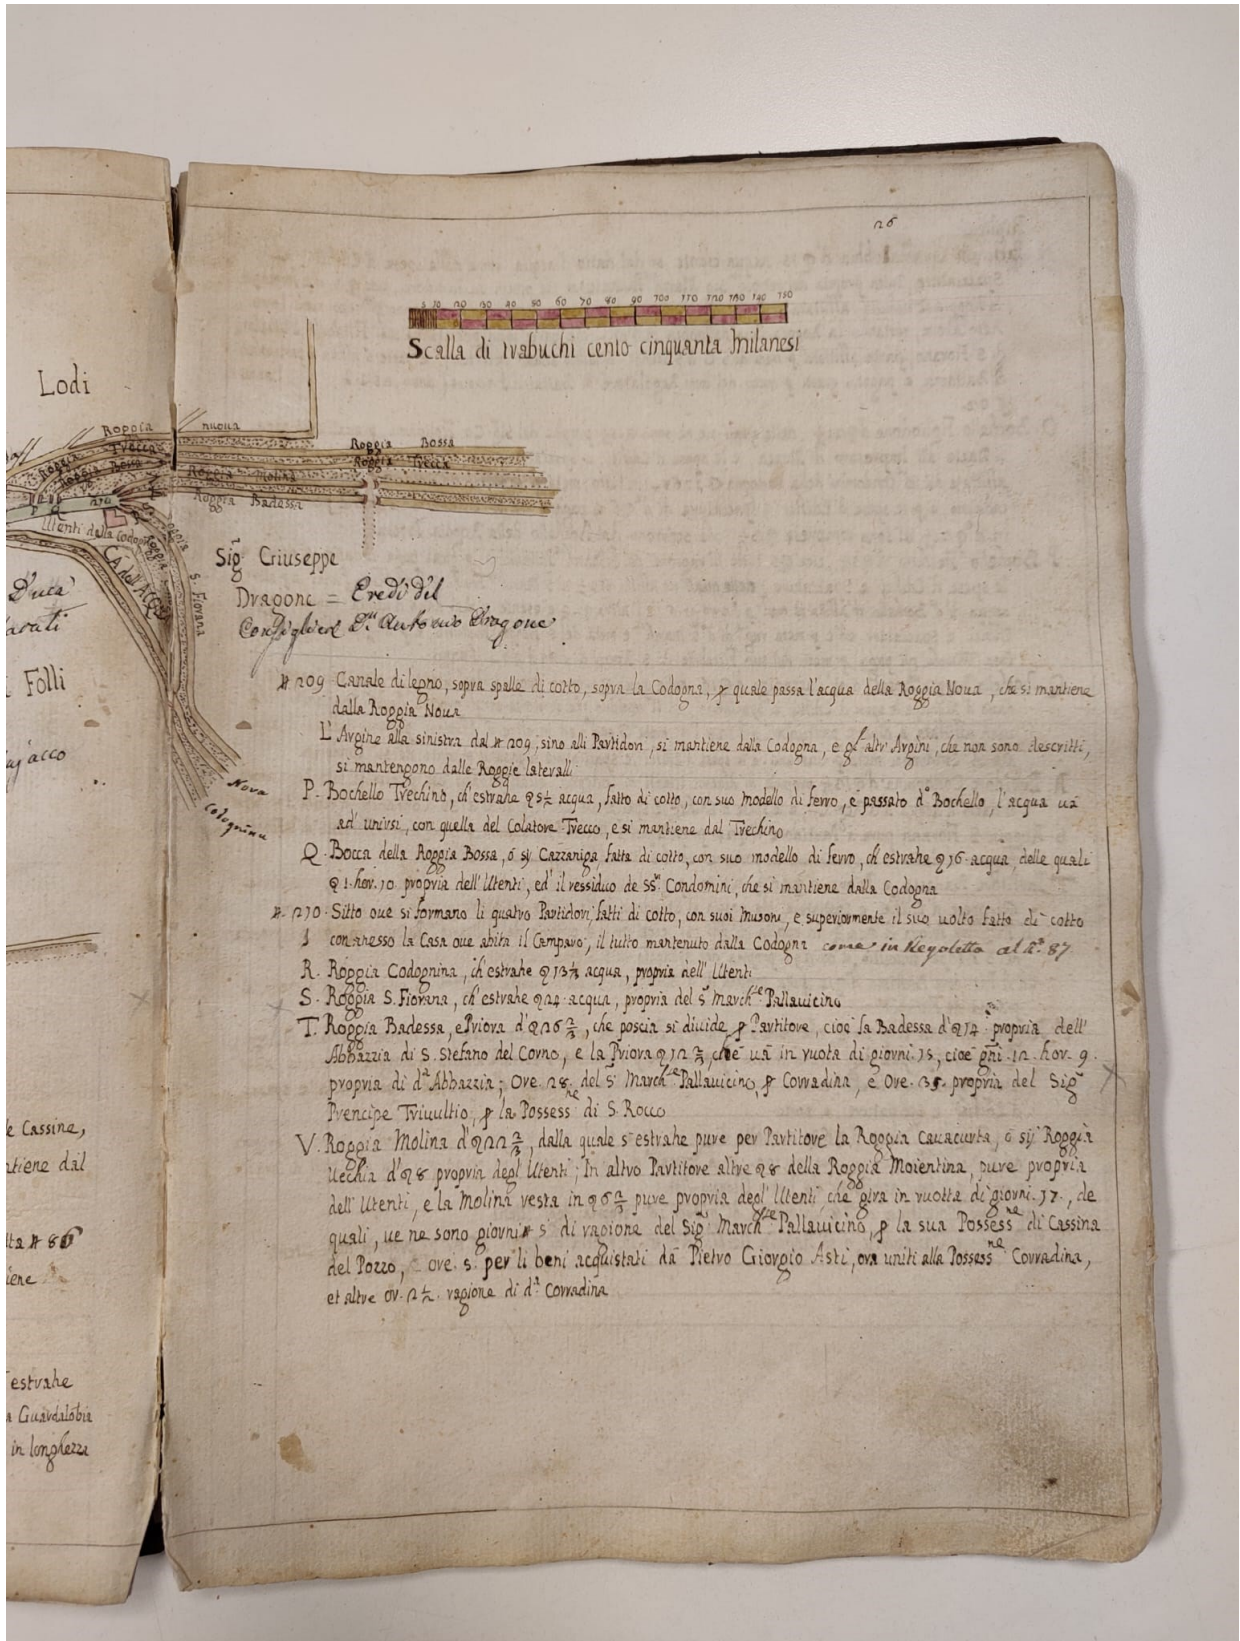 26
5 10 20 30 40 50 60 70 80 90 100 110 120 130 140 150
Scalla di trabuchi cento cinquanta Milanesi
Lodi
Roggia nuova
Roggia Trecca
Roggia Bossa
Roggia Bossa
Roggia Trecca
Roggia Molina
Roggia Badessa
P Q 210
Utenti della Codogna
Cà dell'Acqua
Roggia S. Fiorana
Nova
Codognina
Duca
Folli
Sig.r Giuseppe
Dragone = Eredi del
Consigliere D.n Antonio Dragone
# 209 Canale di legno, sopra spalle di cotto, sopra la Codogna, p quale passa l'acqua della Roggia Noua, che si mantiene
dalla Roggia Noua
L'Argine alla sinistra dal # 209, sino alli Partidori, si mantiene dalla Codogna, e gl'altri Argini, che non sono descritti,
si mantengono dalle Roggie laterali
P. Bochello Trechino, ch'estrahe 5½ acqua, fatto di cotto, con suo modello di ferro, e passato d.o Bochello, l'acqua uà
ad unirsi, con quella del Colatore Trecco, e si mantiene dal Trechino
Q. Bocca della Roggia Bossa, ó sij Cazzaniga, fatta di cotto, con suo modello di ferro, ch'estrahe 16 acqua, delle quali
1. hor. 10 propria dell'Utenti, ed il ressiduo de SS.ri Condomini, che si mantiene dalla Codogna
# 210 Sitto oue si formano li quatro Partidori, fatti di cotto, con suoi Musoni, e superiormente il suo uolto fatto di cotto
1 con anesso la Casa oue abita il Camparo, il tutto mantenuto dalla Codogna come in Regoletta al N.o 87
R. Roggia Codognina, ch'estrahe 13⅓ acqua, propria dell'Utenti
S. Roggia S. Fiorana, ch'estrahe 24 acqua, propria del S.r March.se Pallauicino
T. Roggia Badessa, e Priora d' 26⅔, che poscia si diuide p Partitore, cioè la Badessa d' 14 propria dell'
Abbazzia di S. Stefano del Corno, e la Priora 12⅔, che uà in ruota di giorni 15, cioè gni 12 hor. 9
propria di d.a Abbazzia; Ore 28 del S.r March.se Pallauicino, p Corradina, e Ore 35 propria del Sig.r
Prencipe Triuultio, p la Possess.ne di S. Rocco
V. Roggia Molina d' 22⅔, dalla quale s'estrahe pure per Partitore la Roggia Cauacurta, ó sij Roggia
Uechia d' 8 propria degl'Utenti; In altro Partitore altre 8 della Roggia Moientina, pure propria
dell'Utenti, e la Molina resta in 6⅔ pure propria degl'Utenti, che gira in ruotta di giorni 17, de
quali, ue ne sono giorni # 5 di ragione del Sig.r March.se Pallauicino, p la sua Possess.ne di Cassina
del Pozzo, ore 5 per li beni acquistati dà Pietro Giorgio Asti, ora uniti alla Possess.ne Corradina,
et altre or. 2½ ragione di d.a Corradina
e Cassine,
ntiene dal
# 86
iene
estrahe
a Guardalobia
in longhezza